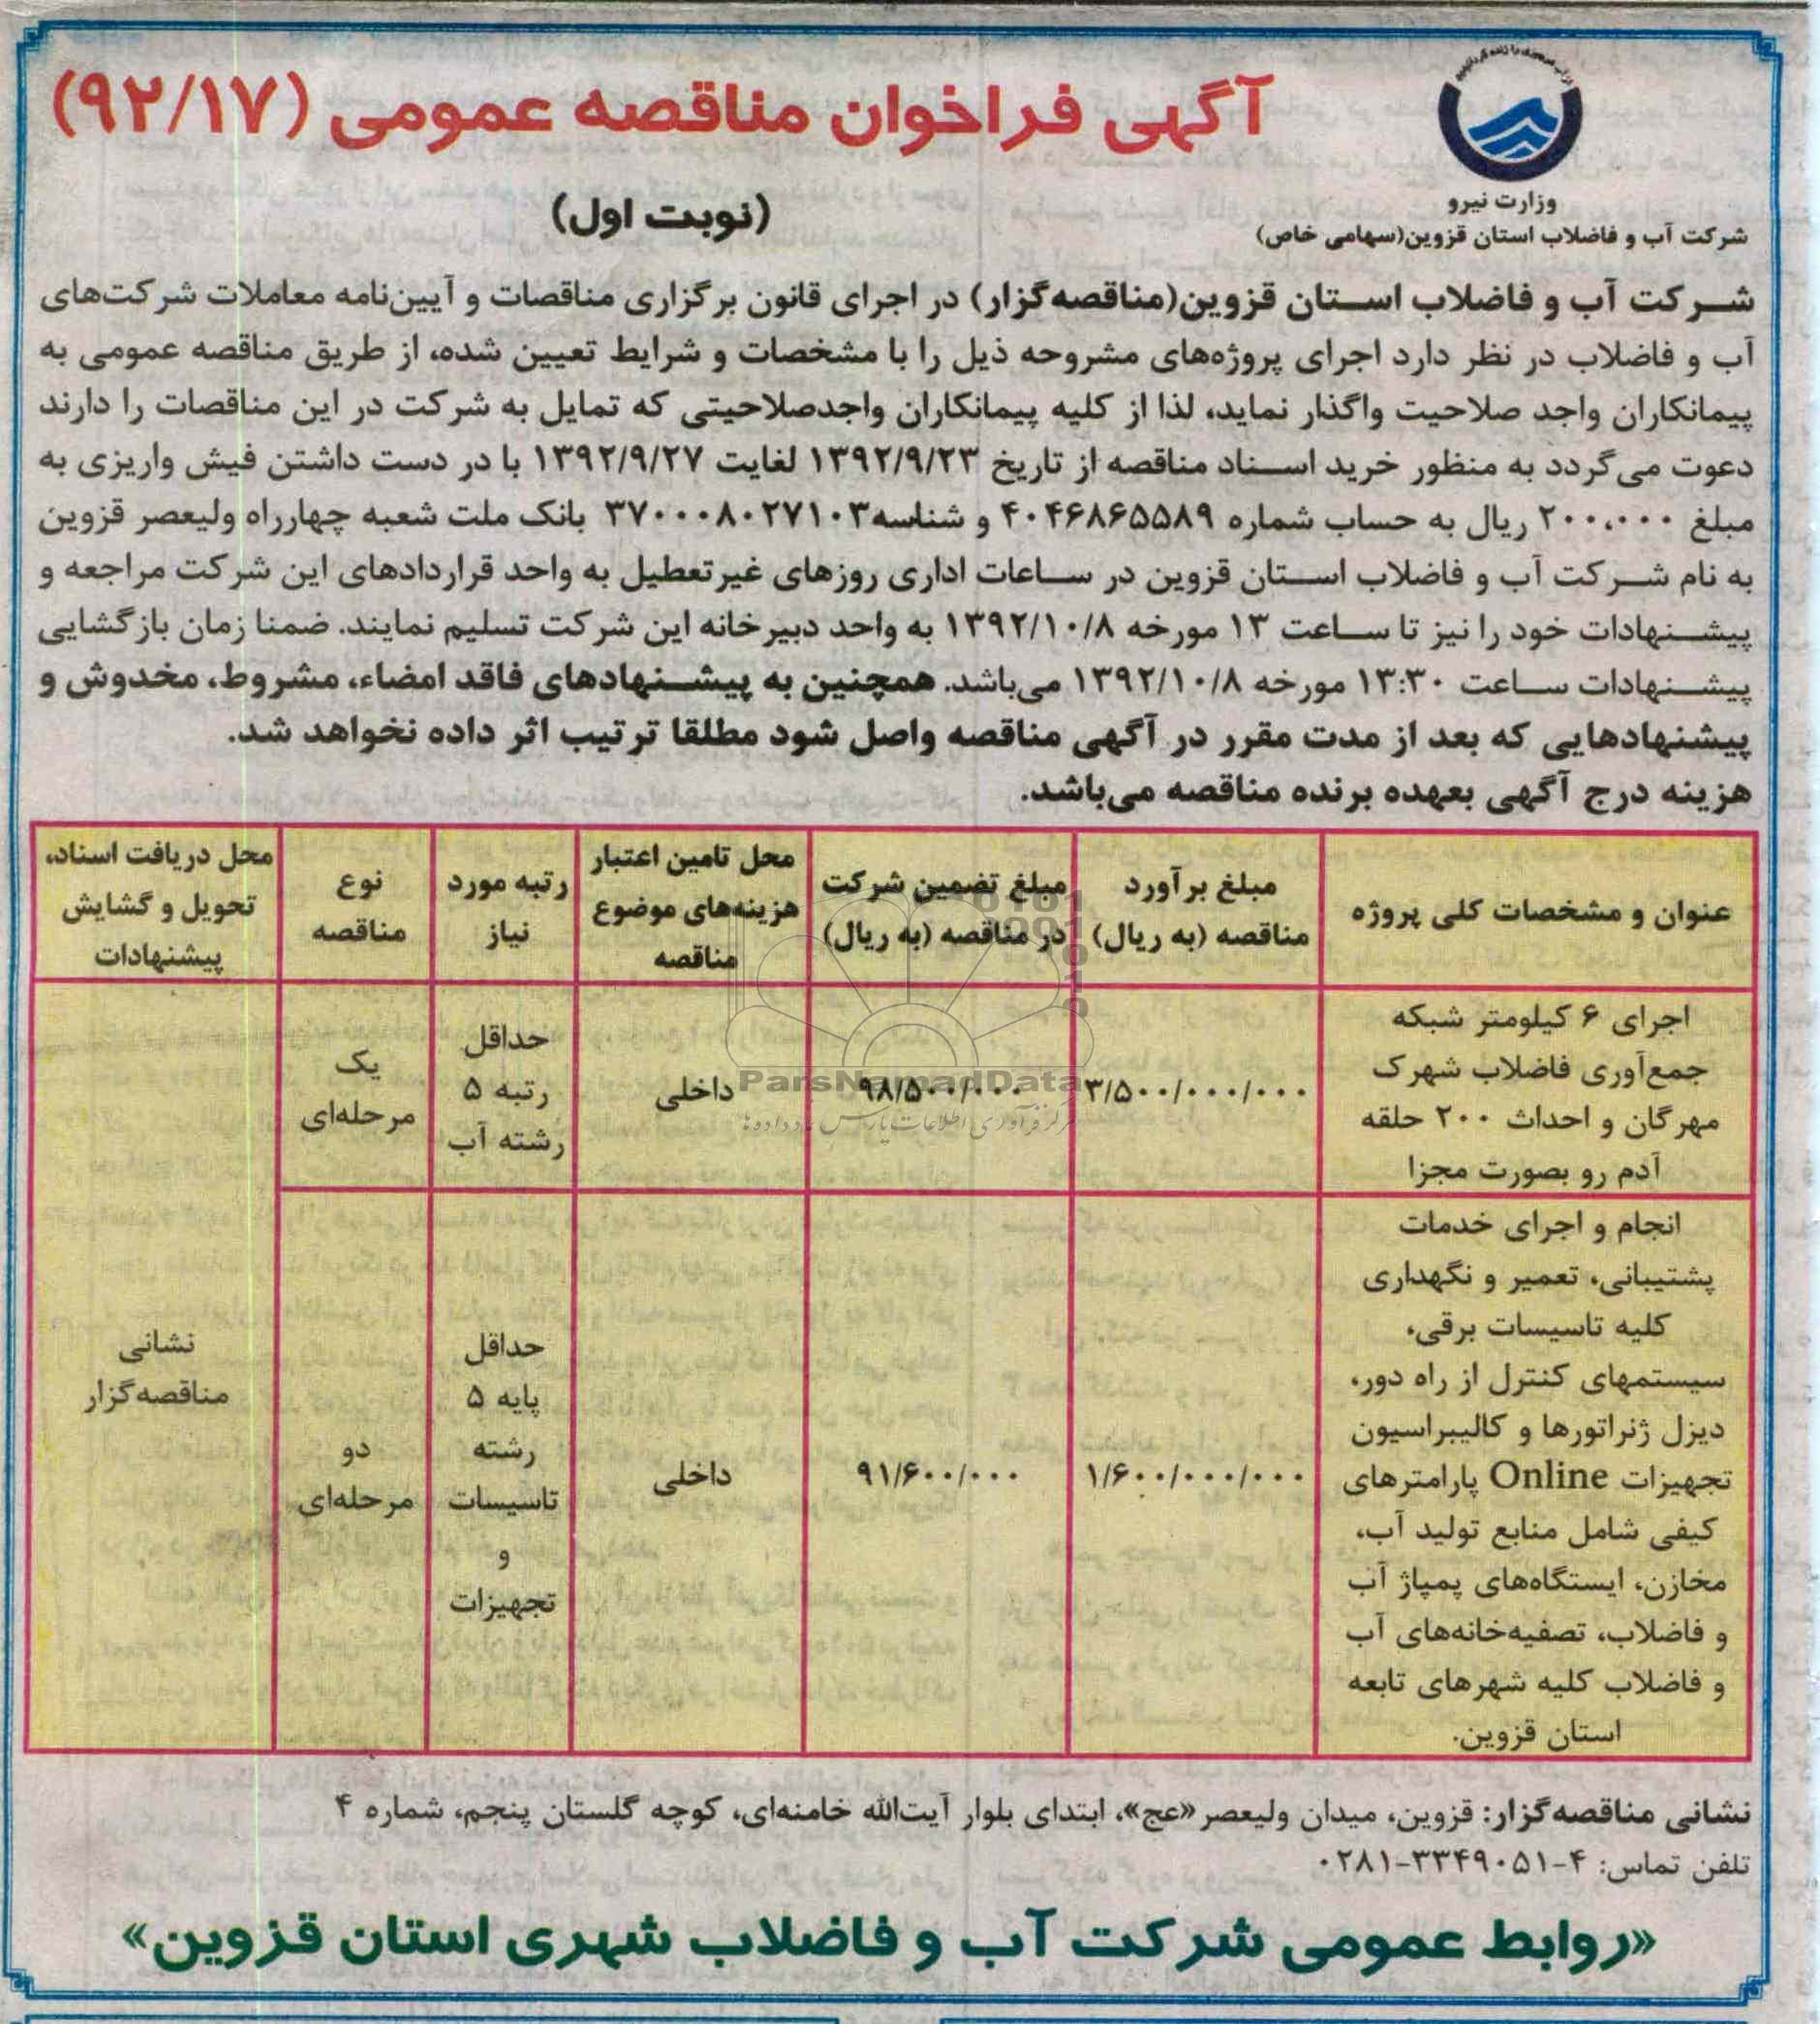 آگهی فراخوان مناقصه عمومی (۹۲/۱۷)
وزارت نیرو
شرکت آب و فاضلاب استان قزوین(سهامی خاص)
(نوبت اول)
شرکت آب و فاضلاب استان قزوین(مناقصه‌گزار) در اجرای قانون برگزاری مناقصات و آیین‌نامه معاملات شرکت‌های
آب و فاضلاب در نظر دارد اجرای پروژه‌های مشروحه ذیل را با مشخصات و شرایط تعیین شده، از طریق مناقصه عمومی به
پیمانکاران واجد صلاحیت واگذار نماید، لذا از کلیه پیمانکاران واجدصلاحیتی که تمایل به شرکت در این مناقصات را دارند
دعوت می‌گردد به منظور خرید اسناد مناقصه از تاریخ ۱۳۹۲/۹/۲۳ لغایت ۱۳۹۲/۹/۲۷ با در دست داشتن فیش واریزی به
مبلغ ۲۰۰،۰۰۰ ریال به حساب شماره ۴۰۴۶۸۶۵۵۸۹ و شناسه۳۷۰۰۰۸۰۲۷۱۰۳ بانک ملت شعبه چهارراه ولیعصر قزوین
به نام شرکت آب و فاضلاب استان قزوین در ساعات اداری روزهای غیرتعطیل به واحد قراردادهای این شرکت مراجعه و
پیشنهادات خود را نیز تا ساعت ۱۳ مورخه ۱۳۹۲/۱۰/۸ به واحد دبیرخانه این شرکت تسلیم نمایند. ضمنا زمان بازگشایی
پیشنهادات ساعت ۱۳:۳۰ مورخه ۱۳۹۲/۱۰/۸ می‌باشد. همچنین به پیشنهادهای فاقد امضاء، مشروط، مخدوش و
پیشنهادهایی که بعد از مدت مقرر در آگهی مناقصه واصل شود مطلقا ترتیب اثر داده نخواهد شد.
هزینه درج آگهی بعهده برنده مناقصه می‌باشد.
عنوان و مشخصات کلی پروژه
مبلغ برآورد
مناقصه (به ریال)
مبلغ تضمین شرکت
در مناقصه (به ریال)
محل تامین اعتبار
هزینه‌های موضوع
مناقصه
رتبه مورد
نیاز
نوع
مناقصه
محل دریافت اسناد،
تحویل و گشایش
پیشنهادات
اجرای ۶ کیلومتر شبکه
جمع‌آوری فاضلاب شهرک
مهرگان و احداث ۲۰۰ حلقه
آدم رو بصورت مجزا
۳/۵۰۰/۰۰۰/۰۰۰
۹۸/۵۰۰/۰۰۰
داخلی
حداقل
رتبه ۵
رشته آب
یک
مرحله‌ای
نشانی
مناقصه‌گزار
انجام و اجرای خدمات
پشتیبانی، تعمیر و نگهداری
کلیه تاسیسات برقی،
سیستمهای کنترل از راه دور،
دیزل ژنراتورها و کالیبراسیون
تجهیزات Online پارامترهای
کیفی شامل منابع تولید آب،
مخازن، ایستگاه‌های پمپاژ آب
و فاضلاب، تصفیه‌خانه‌های آب
و فاضلاب کلیه شهرهای تابعه
استان قزوین.
۱/۶۰۰/۰۰۰/۰۰۰
۹۱/۶۰۰/۰۰۰
داخلی
حداقل
پایه ۵
رشته
تاسیسات
و
تجهیزات
دو
مرحله‌ای
ParsNamadData
مرکز فرآوری اطلاعات پارس نماد داده‌ها
نشانی مناقصه‌گزار: قزوین، میدان ولیعصر«عج»، ابتدای بلوار آیت‌الله خامنه‌ای، کوچه گلستان پنجم، شماره ۴
تلفن تماس: ۴-۳۳۴۹۰۵۱-۰۲۸۱
«روابط عمومی شرکت آب و فاضلاب شهری استان قزوین»